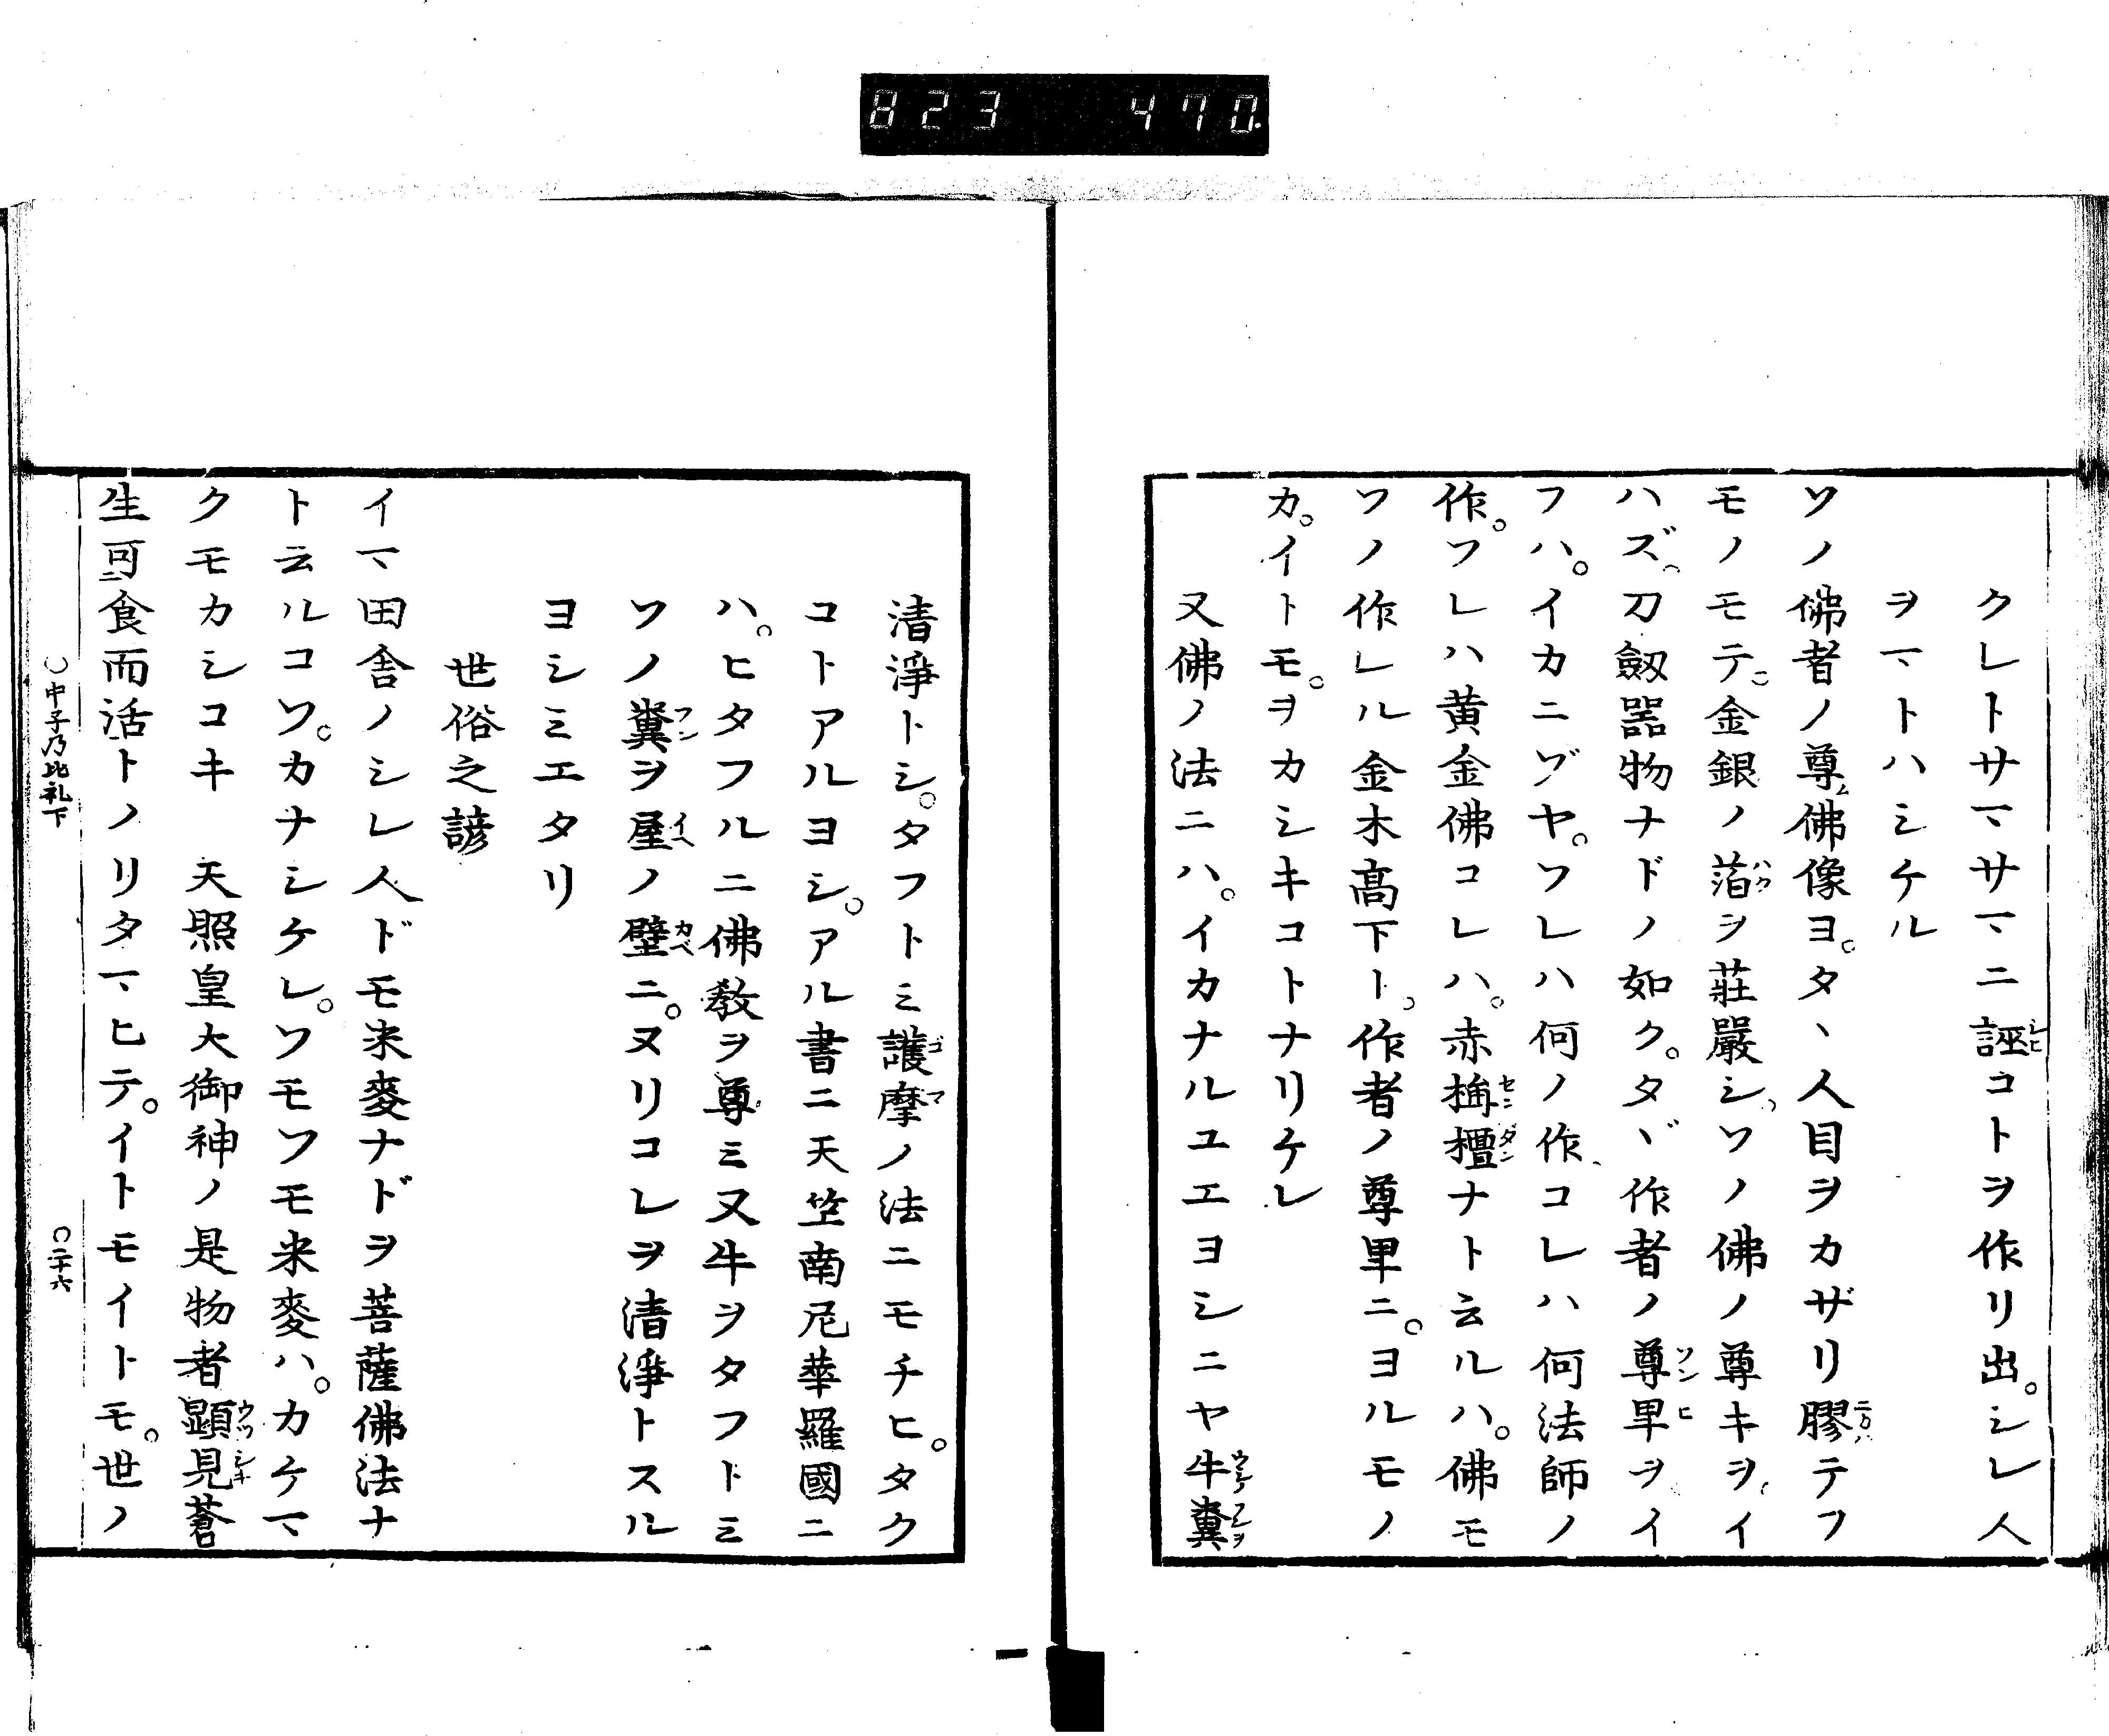 823 470.
クレトサマサマニ誣コトヲ作リ出。シレ人
ヲマトハシケル
ソノ佛者ノ尊ム佛像ヨ。タヽ人目ヲカザリ膠テフ
モノモテ。金銀ノ箔ヲ莊嚴シ。ソノ佛ノ尊キヲイ
ハズ。刀劔噐物ナドノ如ク。タヾ作者ノ尊卑ヲイ
フハ。イカニゾヤ。ソレハ何ノ作、コレハ何法師ノ
作。ソレハ黄金佛コレハ。赤栴檀ナト云ルハ。佛モ
ソノ作レル金木高下ト。作者ノ尊卑ニ。ヨルモノ
カ。イトモ。ヲカシキコトナリケレ
又佛ノ法ニハ。イカナルユエヨシニヤ牛糞
清淨トシ。タフトミ護摩ノ法ニモチヒ。タク
コトアルヨシ。アル書ニ天竺南尼華羅國ニ
ハ。ヒタフルニ佛教ヲ尊ミ又牛ヲタフトミ
ソノ糞ヲ屋ノ壁ニ。ヌリコレヲ清淨トスル
ヨシミエタリ
世俗之諺
イマ田舎ノシレ人ドモ米麥ナドヲ菩薩佛法ナ
ト云ルコソ。カナシケレ。ソモソモ米麥ハ。カケマ
クモカシコキ 天照皇大御神ノ是物者顕見蒼
生可食而活トノリタマヒテ。イトモイトモ。世ノ
○中子乃比礼下 ○二十六